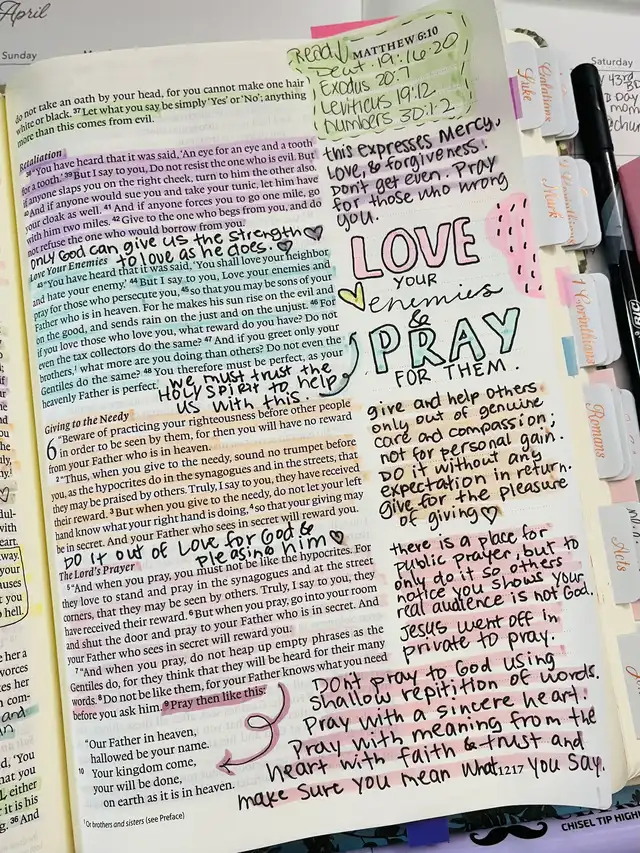 April
Sunday
Saturday
MATTHEW 6:10
Read!
Deut. 19:16-20
Exodus 20:7
Leviticus 19:12
Numbers 30:1-2
do not take an oath by your head, for you cannot make one hair
white or black. 37 Let what you say be simply 'Yes' or 'No'; anything
more than this comes from evil.
Retaliation
38 "You have heard that it was said, 'An eye for an eye and a tooth
for a tooth.' 39 But I say to you, Do not resist the one who is evil. But
if anyone slaps you on the right cheek, turn to him the other also.
40 And if anyone would sue you and take your tunic, let him have
your cloak as well. 41 And if anyone forces you to go one mile, go
with him two miles. 42 Give to the one who begs from you, and do
not refuse the one who would borrow from you.
this expresses Mercy,
Love, & forgiveness!
Don't get even. Pray
for those who wrong
you.
only God can give us the strength
to love as he does.
Love Your Enemies
43 "You have heard that it was said, 'You shall love your neighbor
and hate your enemy.' 44 But I say to you, Love your enemies and
pray for those who persecute you, 45 so that you may be sons of your
Father who is in heaven. For he makes his sun rise on the evil and
on the good, and sends rain on the just and on the unjust. 46 For
if you love those who love you, what reward do you have? Do not
even the tax collectors do the same? 47 And if you greet only your
brothers,1 what more are you doing than others? Do not even the
Gentiles do the same? 48 You therefore must be perfect, as your
heavenly Father is perfect.
we must trust the
HOLY SPIRIT to help
us with this.
LOVE
YOUR
enemies
&
PRAY
FOR THEM.
Giving to the Needy
6 "Beware of practicing your righteousness before other people
in order to be seen by them, for then you will have no reward
from your Father who is in heaven.
2 "Thus, when you give to the needy, sound no trumpet before
you, as the hypocrites do in the synagogues and in the streets, that
they may be praised by others. Truly, I say to you, they have received
their reward. 3 But when you give to the needy, do not let your left
hand know what your right hand is doing, 4 so that your giving may
be in secret. And your Father who sees in secret will reward you.
give and help others
only out of genuine
care and compassion;
not for personal gain.
Do it without any
expectation in return.
give for the pleasure
of giving
DO it out of Love for God &
pleasing him
The Lord's Prayer
5 "And when you pray, you must not be like the hypocrites. For
they love to stand and pray in the synagogues and at the street
corners, that they may be seen by others. Truly, I say to you, they
have received their reward. 6 But when you pray, go into your room
and shut the door and pray to your Father who is in secret. And
your Father who sees in secret will reward you.
7 "And when you pray, do not heap up empty phrases as the
Gentiles do, for they think that they will be heard for their many
words. 8 Do not be like them, for your Father knows what you need
before you ask him. 9 Pray then like this:
"Our Father in heaven,
hallowed be your name.
10 Your kingdom come,
your will be done,
on earth as it is in heaven.
there is a place for
public prayer, but to
only do it so others
notice you shows your
real audience is not God.
Jesus went off in
private to pray.
Don't pray to God using
shallow repitition of words.
Pray with a sincere heart!
Pray with meaning from the
heart with faith & trust and
make sure you mean what you say.
1217
1 Or brothers and sisters (see Preface)
Luke
Galatians
Mark
1 Corinthians
Romans
Acts
CHISEL TIP HIGHL